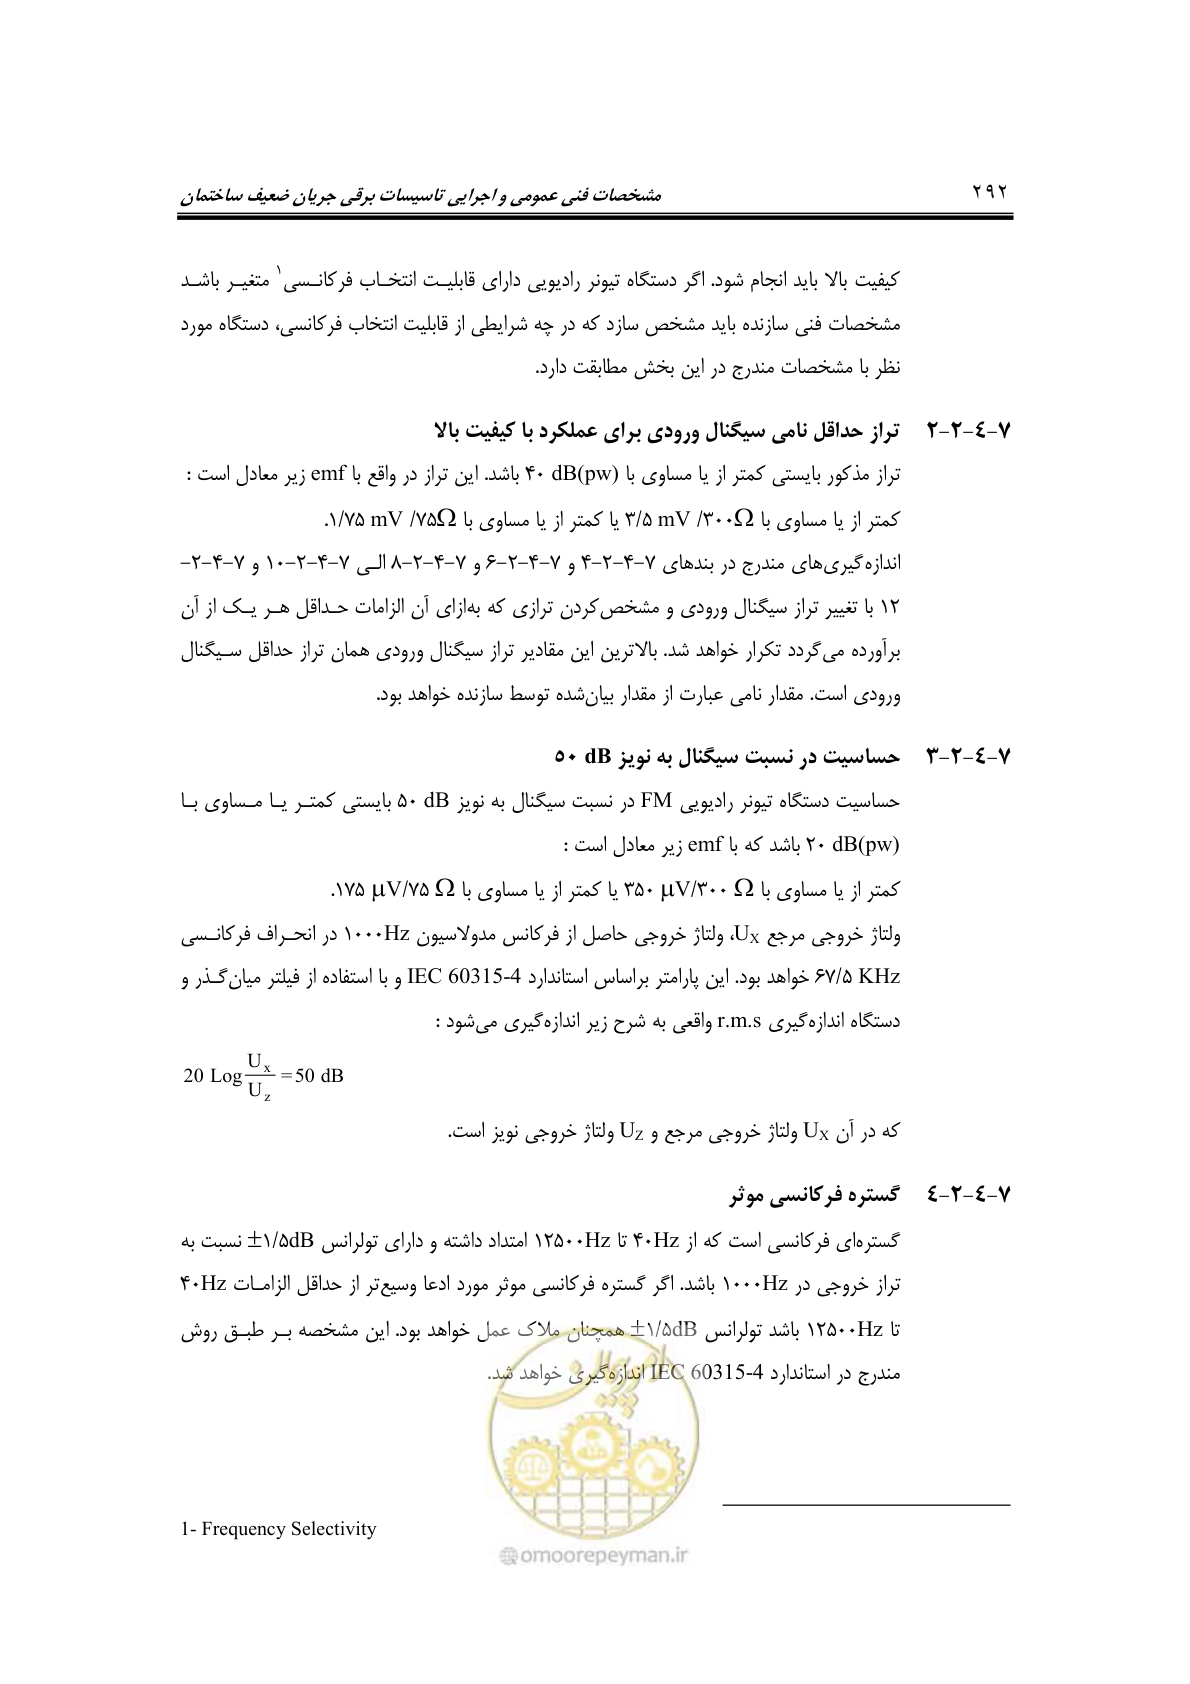 ۲۹۲
مشخصات فنی عمومی و اجرایی تاسیسات برقی جریان ضعیف ساختمان
کیفیت بالا باید انجام شود. اگر دستگاه تیونر رادیویی دارای قابلیت انتخاب فرکانسی۱ متغیر باشد
مشخصات فنی سازنده باید مشخص سازد که در چه شرایطی از قابلیت انتخاب فرکانسی، دستگاه مورد
نظر با مشخصات مندرج در این بخش مطابقت دارد.
۷-۴-۲-۲ تراز حداقل نامی سیگنال ورودی برای عملکرد با کیفیت بالا
تراز مذکور بایستی کمتر از یا مساوی با ۴۰ dB(pw) باشد. این تراز در واقع با emf زیر معادل است :
کمتر از یا مساوی با ۳/۵ mV /۳۰۰Ω یا کمتر از یا مساوی با ۱/۷۵ mV /۷۵Ω.
اندازه‌گیری‌های مندرج در بندهای ۷-۴-۲-۴ و ۷-۴-۲-۶ و ۷-۴-۲-۸ الی ۷-۴-۲-۱۰ و ۷-۴-۲-
۱۲ با تغییر تراز سیگنال ورودی و مشخص‌کردن ترازی که به‌ازای آن الزامات حداقل هر یک از آن
برآورده می‌گردد تکرار خواهد شد. بالاترین این مقادیر تراز سیگنال ورودی همان تراز حداقل سیگنال
ورودی است. مقدار نامی عبارت از مقدار بیان‌شده توسط سازنده خواهد بود.
۷-۴-۲-۳ حساسیت در نسبت سیگنال به نویز ۵۰ dB
حساسیت دستگاه تیونر رادیویی FM در نسبت سیگنال به نویز ۵۰ dB بایستی کمتر یا مساوی با
۲۰ dB(pw) باشد که با emf زیر معادل است :
کمتر از یا مساوی با ۳۵۰ μV/۳۰۰ Ω یا کمتر از یا مساوی با ۱۷۵ μV/۷۵ Ω.
ولتاژ خروجی مرجع UX، ولتاژ خروجی حاصل از فرکانس مدولاسیون ۱۰۰۰Hz در انحراف فرکانسی
۶۷/۵ KHz خواهد بود. این پارامتر براساس استاندارد IEC 60315-4 و با استفاده از فیلتر میان‌گذر و
دستگاه اندازه‌گیری r.m.s واقعی به شرح زیر اندازه‌گیری می‌شود :
20 Log Ux/Uz =50 dB
که در آن UX ولتاژ خروجی مرجع و UZ ولتاژ خروجی نویز است.
۷-۴-۲-۴ گستره فرکانسی موثر
گستره‌ای فرکانسی است که از ۴۰Hz تا ۱۲۵۰۰Hz امتداد داشته و دارای تولرانس ±۱/۵dB نسبت به
تراز خروجی در ۱۰۰۰Hz باشد. اگر گستره فرکانسی موثر مورد ادعا وسیع‌تر از حداقل الزامات ۴۰Hz
تا ۱۲۵۰۰Hz باشد تولرانس ±۱/۵dB همچنان ملاک عمل خواهد بود. این مشخصه بر طبق روش
مندرج در استاندارد IEC 60315-4 اندازه‌گیری خواهد شد.
امور پیمان
1- Frequency Selectivity
@omoorepeyman.ir